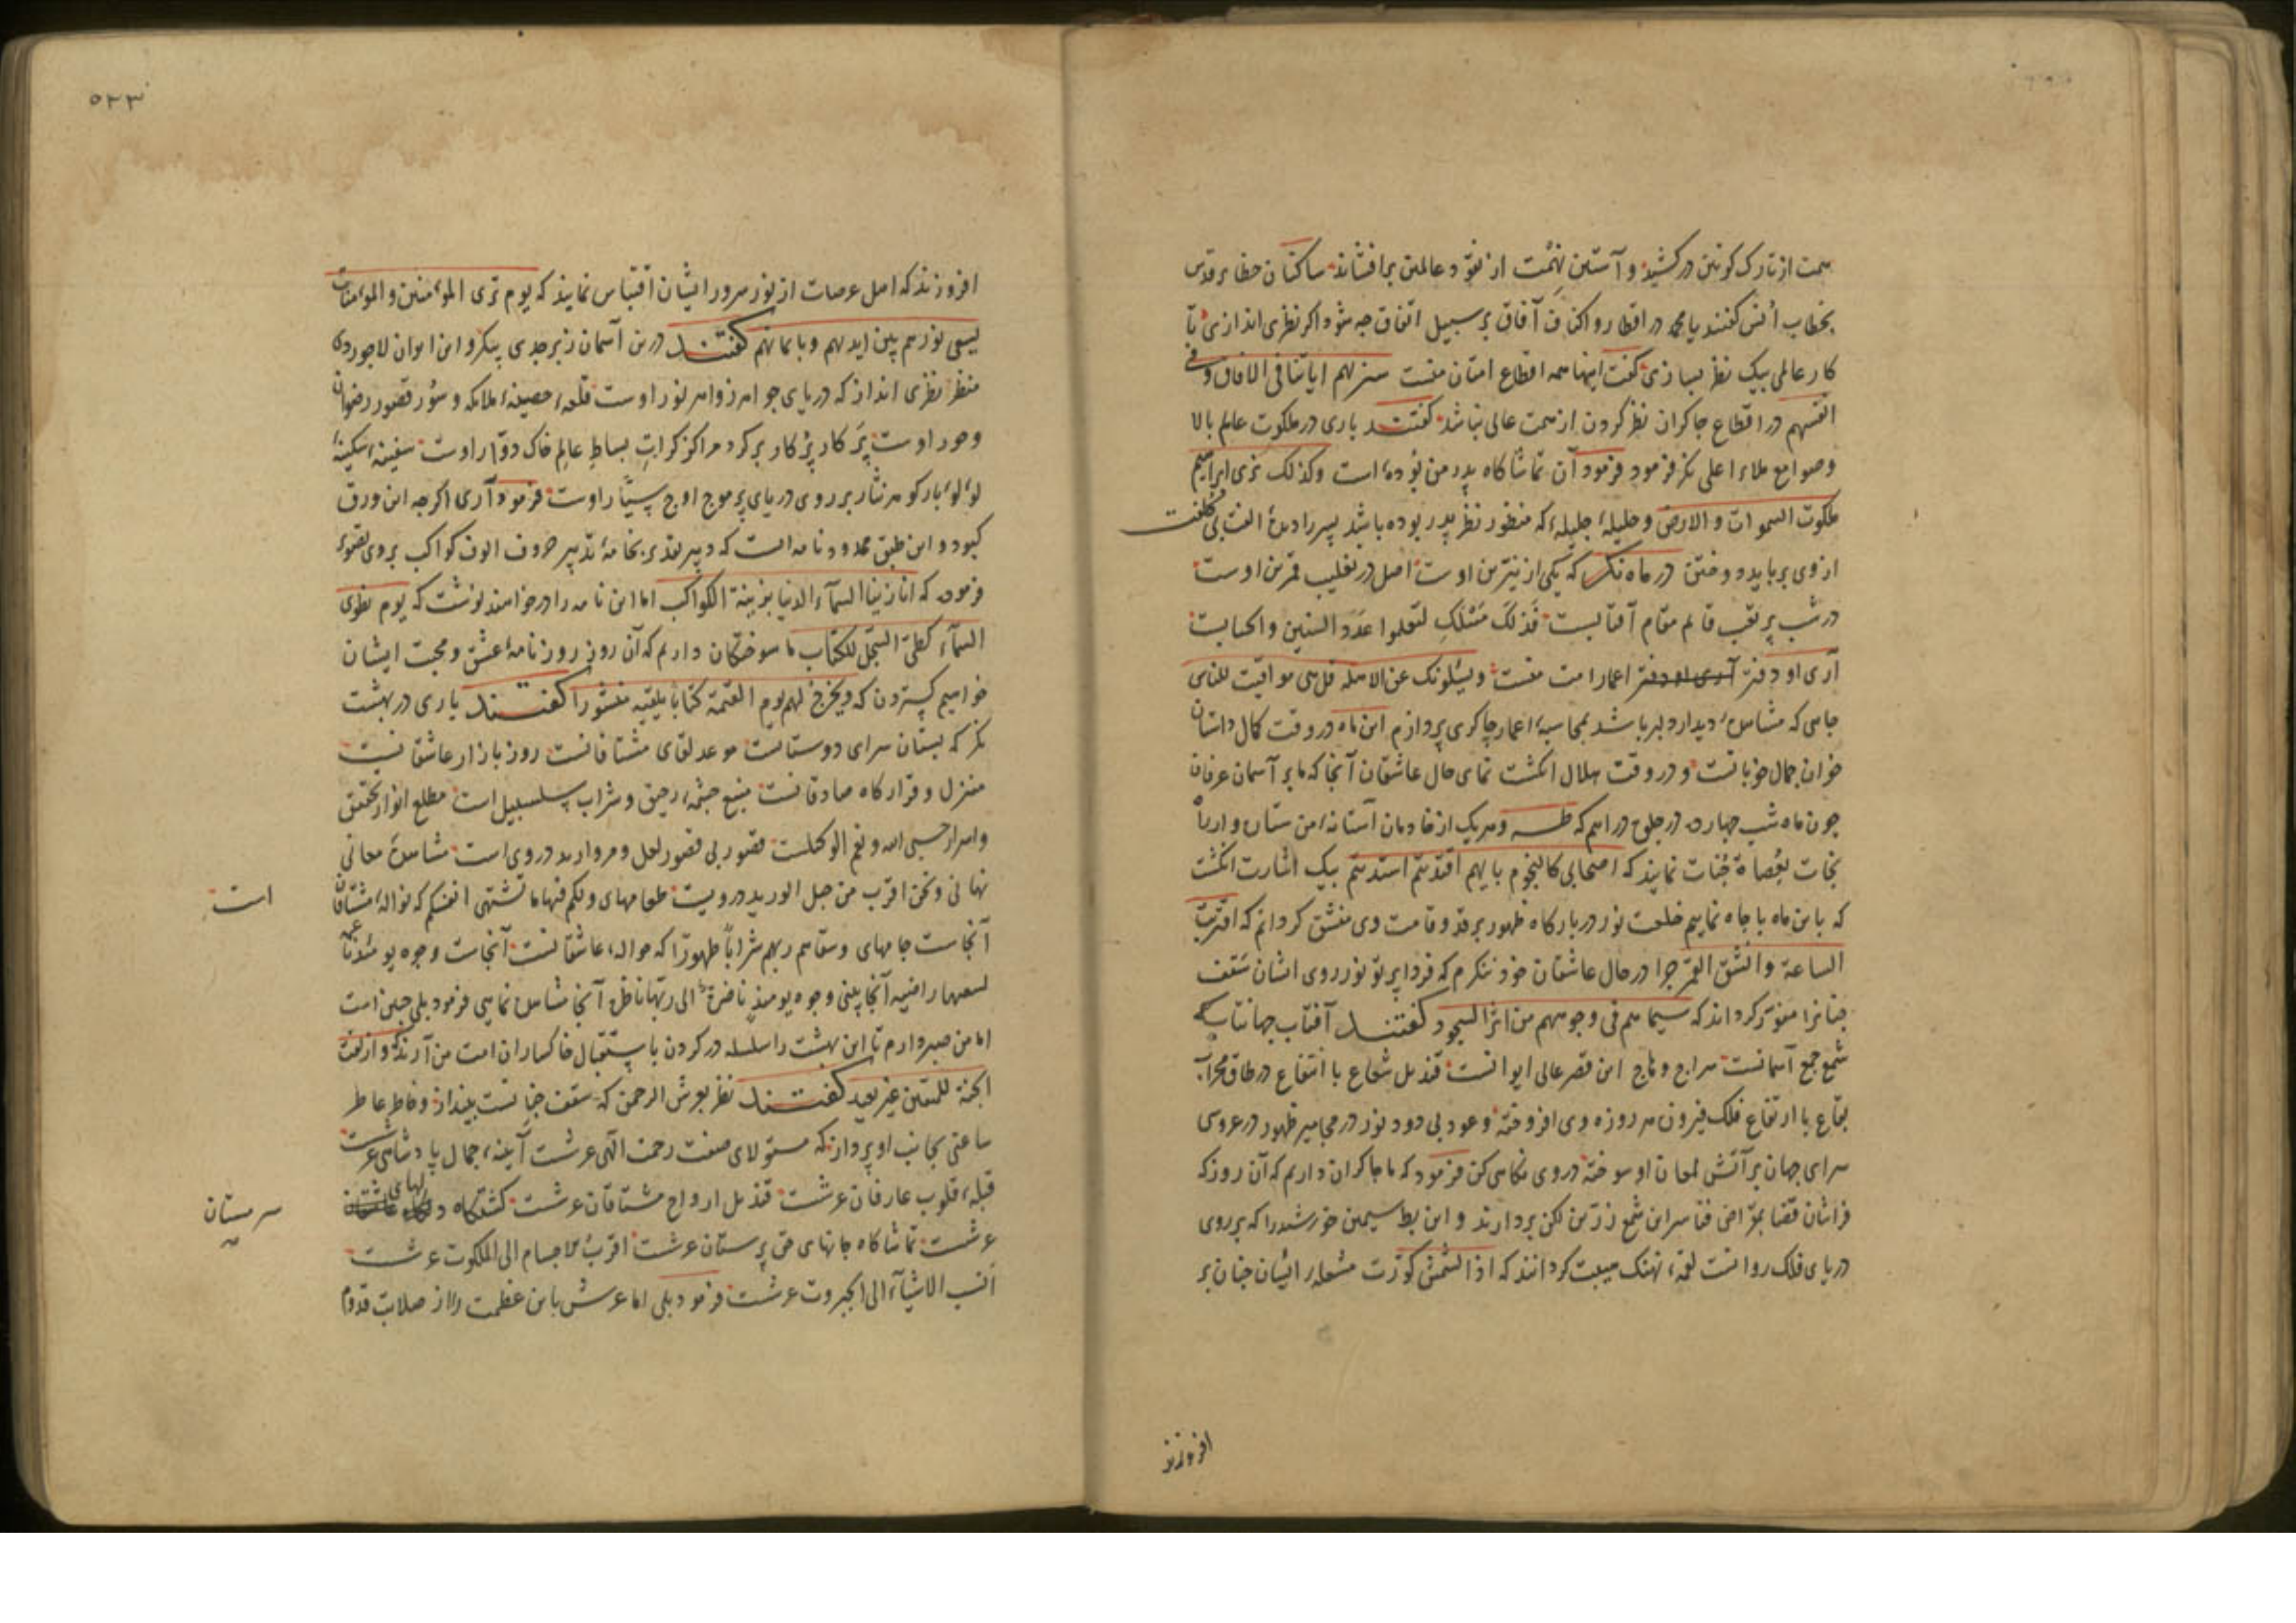 همت از تارک کونین درکشید و آستین نهمت از نقود عالمین برافشاند ساکنان حظایر قدس
بخطاب انس کفتند یا محمد در اقطار و اکناف آفاق بر سبیل اتفاق چه شود اکر نظری اندازی تا
کار عالمی بیک نظر بسازی کفت اینها همه اقطاع امتان منست سنریهم ایاتنا فی الافاق و فی
انفسهم در اقطاع چاکران نظر کردن از همت عالی نباشد کفتند باری در ملکوت عالم بالا
و صوامع ملاء اعلی نکر فرمود فرمود آن تماشاکاه پدر من بوده است وکذلک نری ابراهیم
ملکوت السموات والارض و حلیلهٔ جلیله که منظور نظر پدر بوده باشد پسر را دیدهٔ الفت بی کلفت
از وی برباید دوختن در ماه نکر که یکی از نیترین اوست اصل در تغلیب قمرین اوست
در شب پر تعب قایم مقام آفتابست فذلک لتعلموا عدد السنین والحساب
آری او دفتر اعمار امت منست ویسئلونک عن الاهلة قل هی مواقیت للناس
جایی که مشاهدهٔ دیدار دلبر باشد بمحاسبهٔ اعمار چاکری پردازم این ماه در وقت کمال داستان
خوان جمال خوبانست و در وقت هلال انکشت نمای حال عاشقان آنجا که ما بر آسمان عرفان
چون ماه شب چهارده در جلوه در اهم که طه و هر یک از خادمان آستانهٔ من ستاره وار راه
نجات بعصاة جنات نمایند که اصحابی کالنجوم بایهم اقتدیتم اهتدیتم بیک اشارت انکشت
که با این ماه با جاه نماییم خلعت نور در بارکاه ظهور بر قد و قامت وی منشق کردانم که اقتربت
الساعة وانشق القمر چرا در حال عاشقان خود ننکرم که فردا پرتو نور روی ایشان سقف
جنانرا منور کرداند که سیماهم فی وجوههم من اثر السجود کفتند آفتاب جهانتاب که
شمع جمع آسمانست سراج وهاج این قصر عالی ایوانست قندیل شعاع با انتفاع در طاق محراب
بقاع با ارتفاع فلک فیروزه هر روزه وی افروخته و عود بی دود نور در مجامیر ظهور در عروسی
سرای جهان بر آتش لمعان او سوخته در وی نکاهی کن فرمود که ما چاکران داریم که آن روز که
فراشان قضا بمقراض فنا سر این شمع زرین لکن بردارند و این بط سیمین خورشید را که بر روی
دریای فلک روانست لقمهٔ نهنک هیبت کردانند که اذا الشمس کورت مشعلهٔ ایشان چنان بر
افروزند
۵۲۳
افروزند که اهل عرصات از نور سرور ایشان اقتباس نمایند که یوم تری المؤمنین والمؤمنات
یسعی نورهم بین ایدیهم وبایمانهم کفتند درین آسمان زبرجدی پیکر و این ایوان لاجوردی
منظر نظری انداز که دریای جواهر زواهر نور اوست قلعهٔ حصینهٔ ملایکه و سور قصور رضوان
و حور اوست پرکار پرکار بر کرد مراکز کرات بساط عالم خاک دوار اوست سفینهٔ سکینهٔ
لؤلؤبار کوهر نثار بر روی دریای پر موج اوج سیار اوست فرمود آری اکرچه این ورق
کبود و این طبق محدود نامه ایست که دبیر تقدیر بخامهٔ تدبیر حروف الوف کواکب بر وی
فرموده که انا زینا السمآء الدنیا بزینة الکواکب اما این نامه را در خواهند نوشت که یوم نطوی
السمآء کطی السجل للکتاب ما سوختکان داریم که آن روز روزنامهٔ عشق و محبت ایشان
خواهیم کستردن که ویخرج لهم یوم القیمة کتابا یلقیه منشورا کفتند باری در بهشت
نکر که بستان سرای دوستانست موعد لقای مشتاقانست روز بازار عاشقانست
منزل و قرارکاه صادقانست منبع چشمهٔ رحیق و شراب سلسبیل است مطلع انوار تحقیق
و اسرار حسبی الله ونعم الوکیلست قصور بی قصور لعل و مروارید در وی است مشاهدهٔ معانی
نهانی ونحن اقرب من حبل الورید در ویست طعامهای ولکم فیها ما تشتهی انفسکم که نوالهٔ مشتاقانست
آنجاست جامهای وسقاهم ربهم شرابا طهورا که حوالهٔ عاشقانست آنجاست وجوه یومئذ ناعمة
لسعیها راضیه آنجا بینی وجوه یومئذ ناضرة الی ربها ناظره آنجا مشاهده نمایی فرمود بلی چنین است
اما من صبر دارم تا این بهشت را سلسله در کردن باستقبال خاکساران امت من آرند که وازلفت
الجنة للمتقین غیر بعید کفتند نظر بعرش الرحمن که سقف جنانست بینداز و خاطر عاطر
ساعتی بجانب او پرداز که مستولای صفت رحمت الهی عرشت آیینهٔ جمال پادشاهی عرشت
قبلهٔ قلوب عارفان عرشت قندیل ارواح مشتاقان عرشت کشتکاه دلهای
عرشت تماشاکاه جانهای حق پرستان عرشت اقرب الاجسام الی الملکوت عرشت
انسب الاشیآء الی الجبروت عرشت فرمود بلی اما عرش باین عظمت را از صلابت قدوم
است
سرمستان